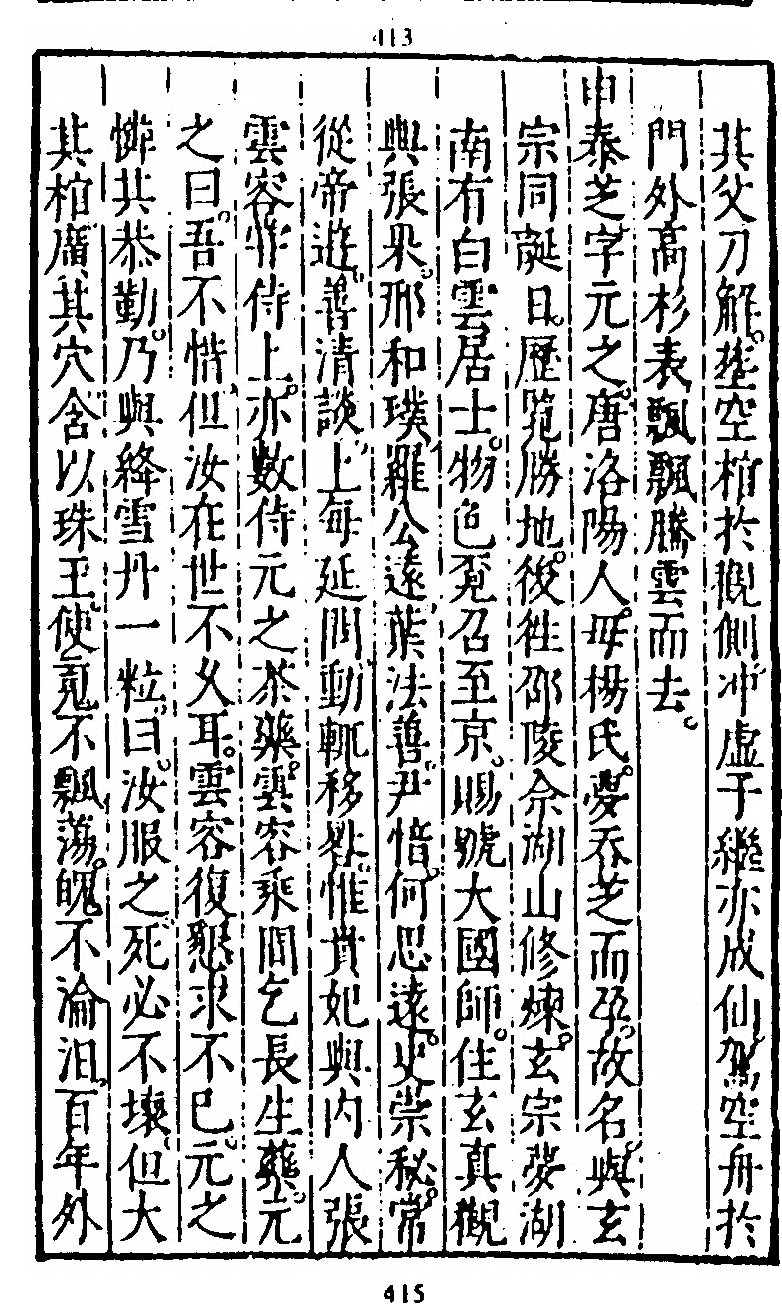 413
其父刀解。塟空棺於觀側。冲虛子繼亦成仙。駕空舟於
門外高杉表。飄飄騰雲而去。
申泰芝字元之。唐洛陽人。母楊氏。夢吞芝而孕。故名。與玄
宗同誕日。歷覽勝地。後徃邵陵佘湖山修煉。玄宗夢湖
南有白雲居士。物色覔召至京。賜號大國師。住玄真觀
與張果。邢和璞。羅公遠。葉法善。尹愔。何思遠。史崇。秘常
從帝遊。善清談。上每延問。動輒移晷。惟貴妃與內人張
雲容常侍上。亦數侍元之茶藥。雲容乘間乞長生藥。元
之曰。吾不惜。但汝在世不乆耳。雲容復懇求不已。元之
憐其恭勤。乃與絳雪丹一粒。曰。汝服之。死必不壞。但大
其棺。廣其穴。含以珠玉。使䰟不飄蕩。魄不淪汨。百年外
415